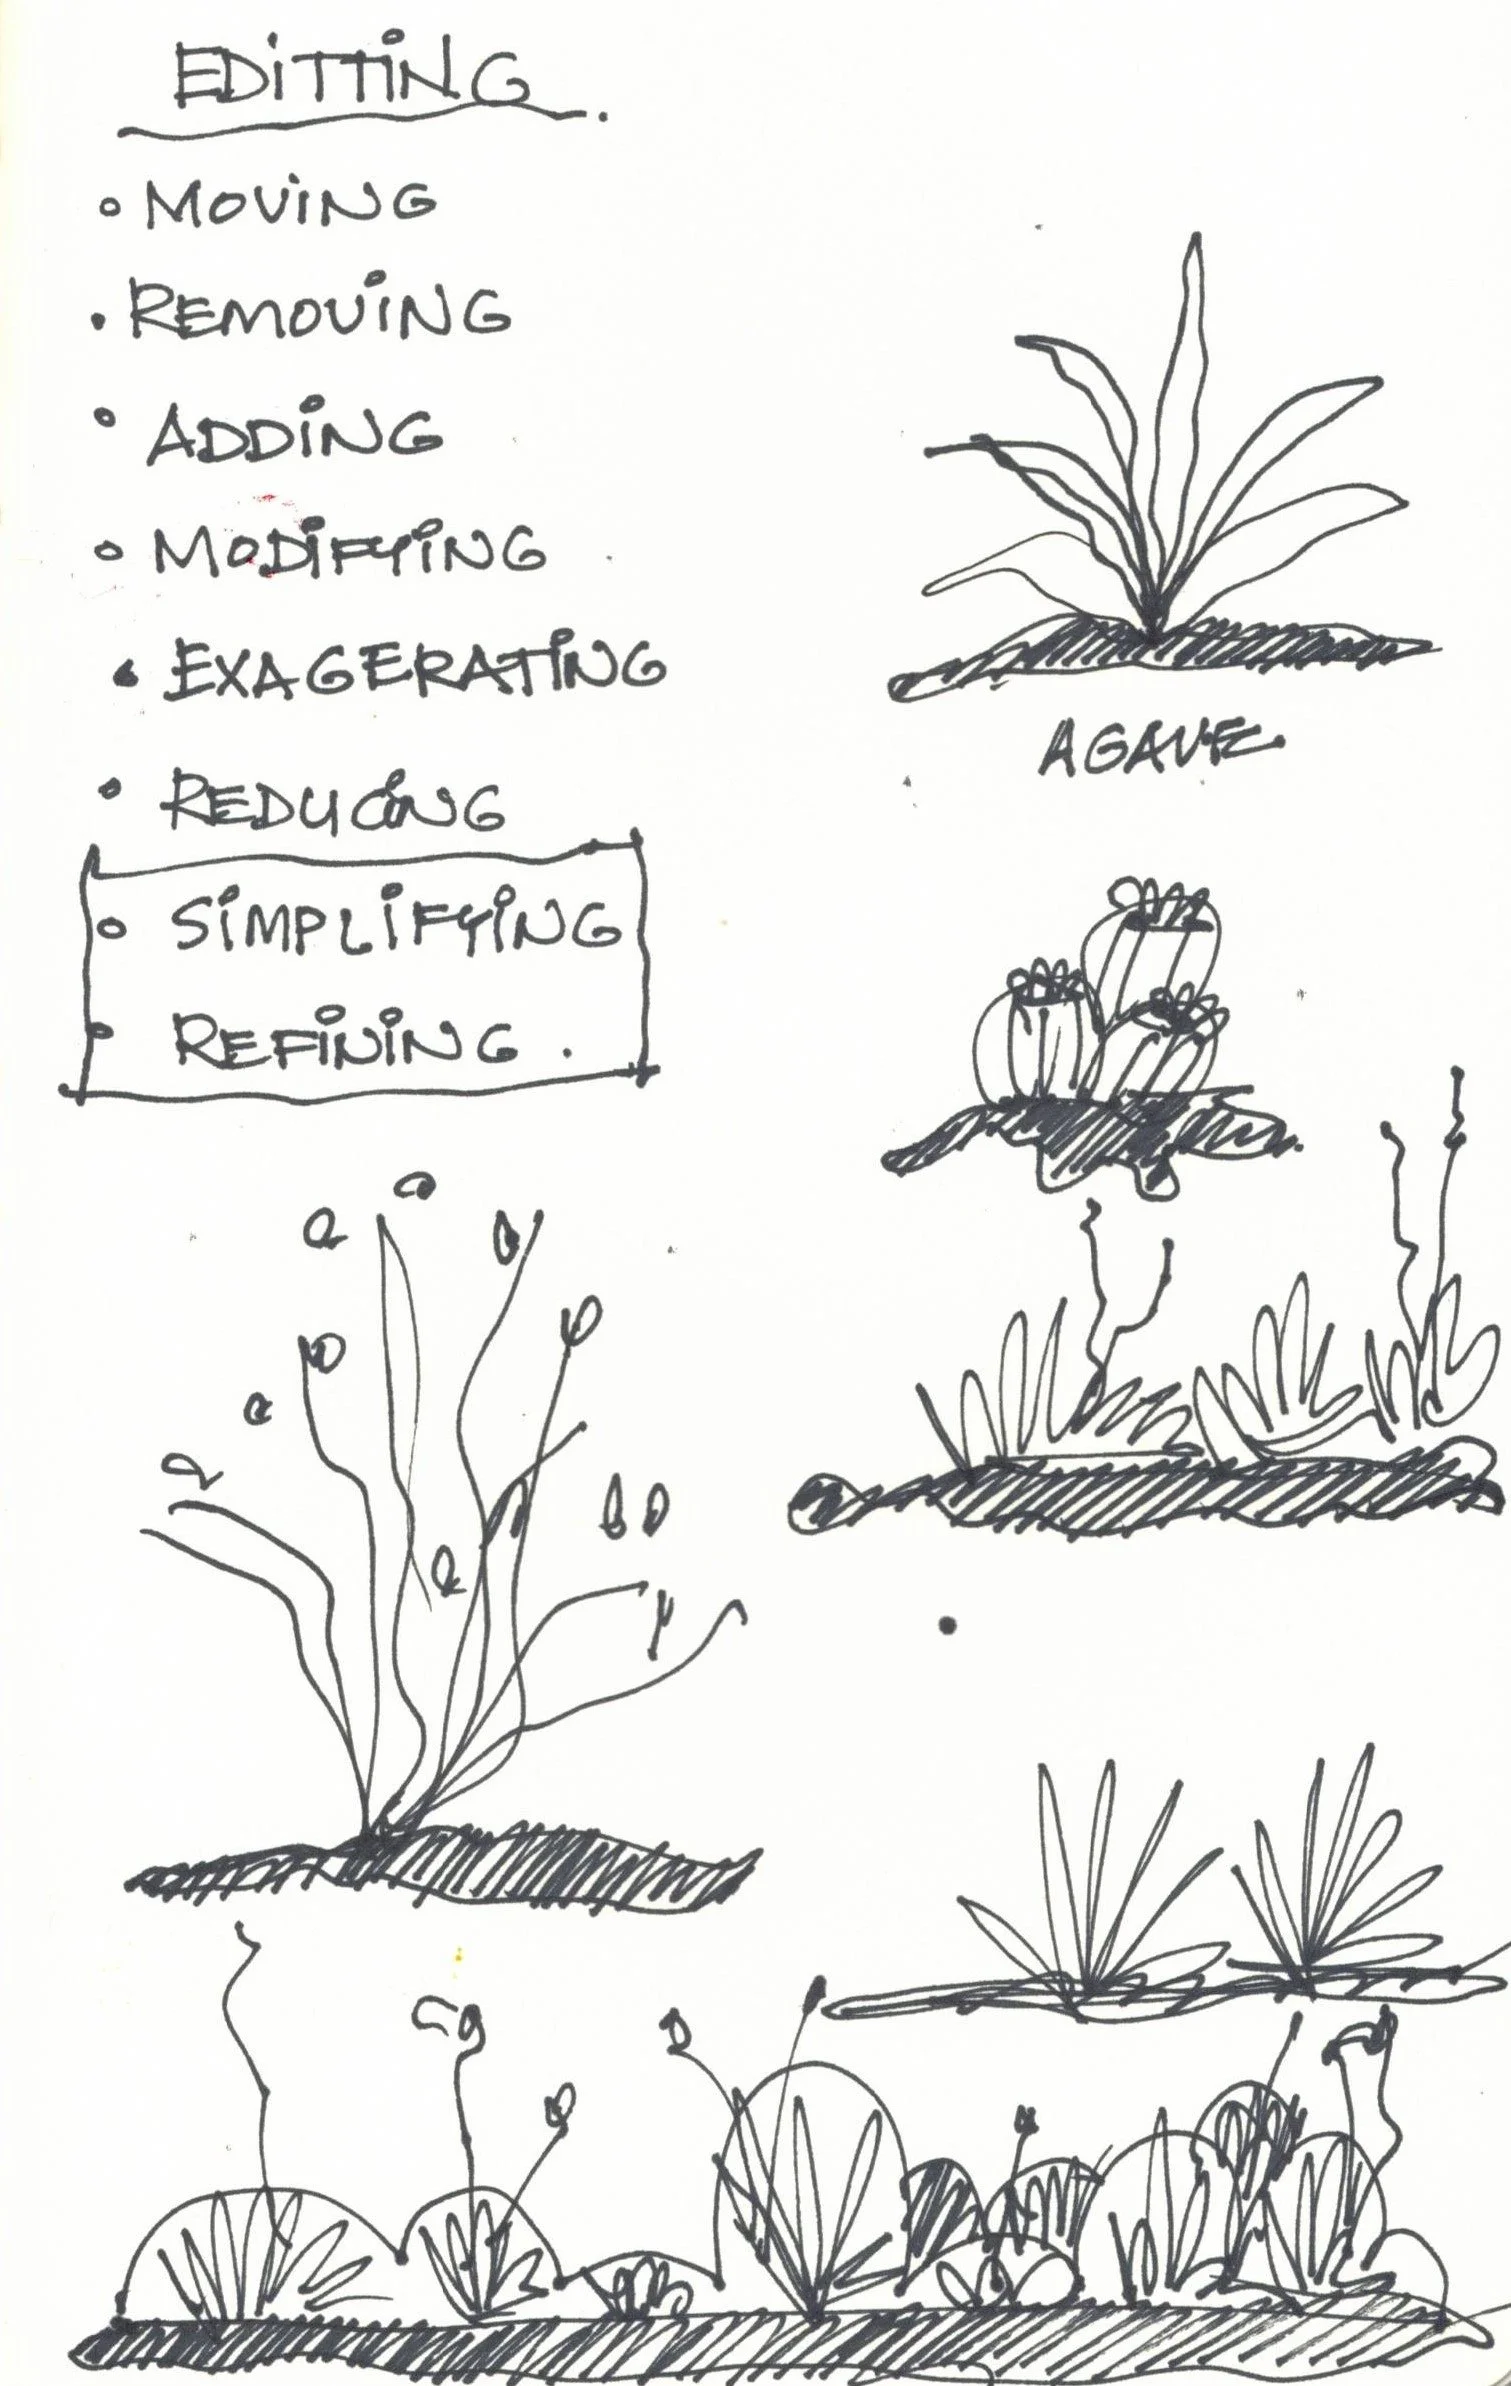 EDITTING.
• MOVING
• REMOVING
• ADDING
• MODIFYING
• EXAGERATING
• REDUCING
• SIMPLIFYING
• REFINING.
AGAVE